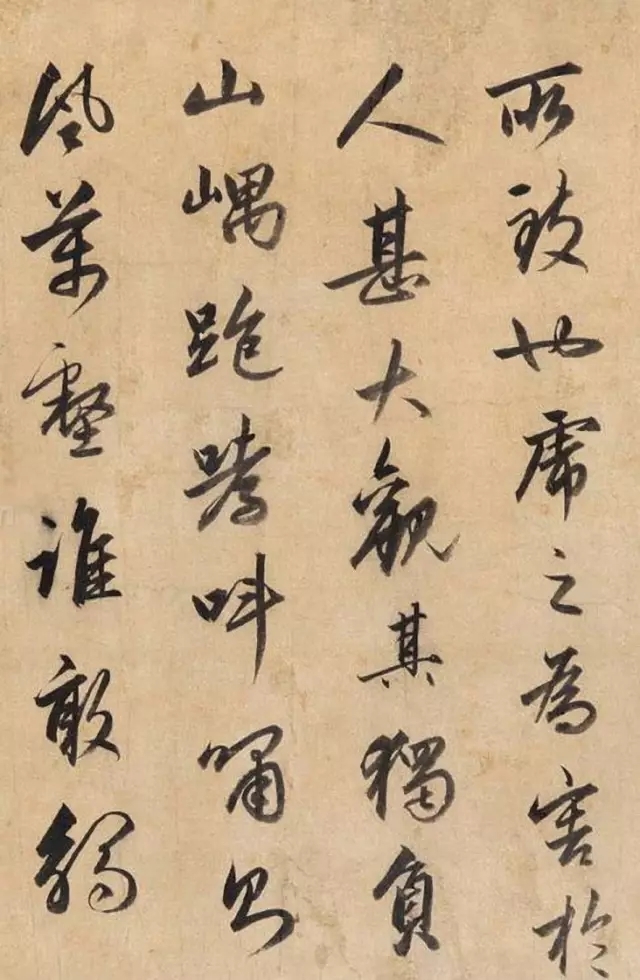 所致也虎之為害於
人甚大觀其獨負
山嵎跑哮叫嘯則
風萬壑誰敢觸